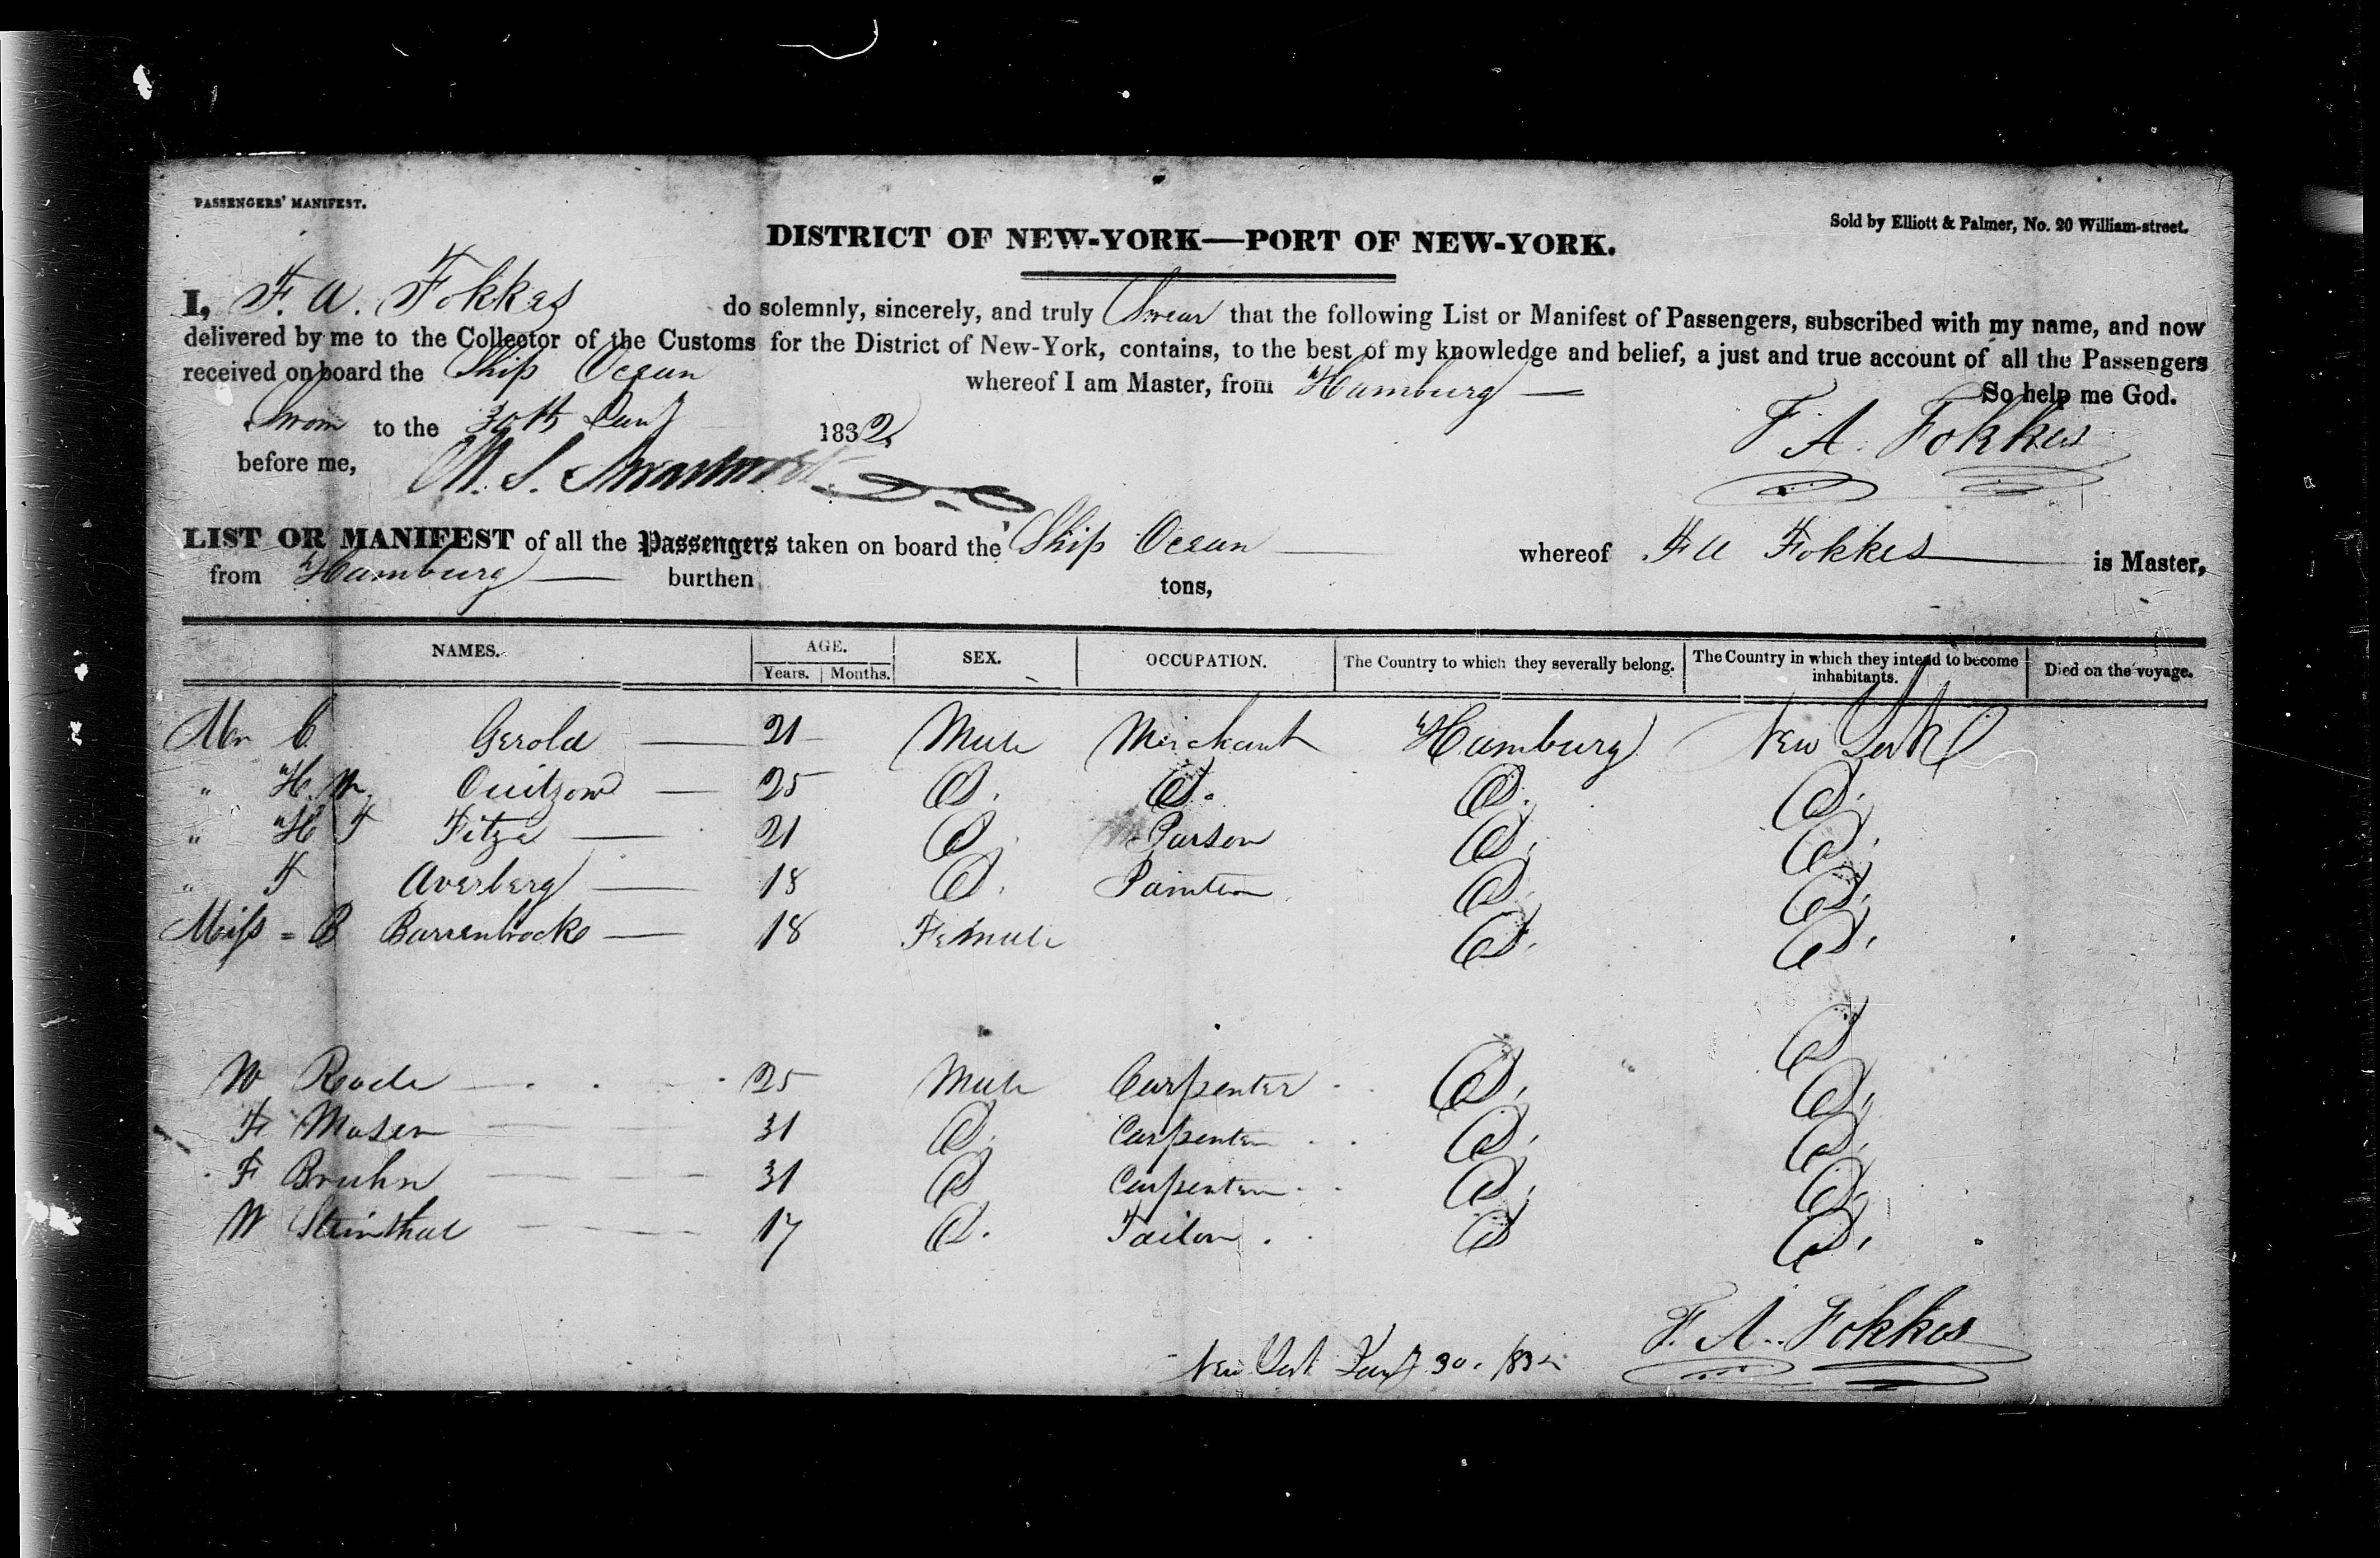 PASSENGERS' MANIFEST.
Sold by Elliott & Palmer, No. 20 William-street.
DISTRICT OF NEW-YORK—PORT OF NEW-YORK.
I, F. A. Fokkes do solemnly, sincerely, and truly Swear that the following List or Manifest of Passengers, subscribed with my name, and now
delivered by me to the Collector of the Customs for the District of New-York, contains, to the best of my knowledge and belief, a just and true account of all the Passengers
received on board the Ship Ocean whereof I am Master, from Hamburg
So help me God.
Sworn to the 30th Jany 1832
F. A. Fokkes
before me,
LIST OR MANIFEST of all the Passengers taken on board the Ship Ocean whereof F A Fokkes is Master,
from Hamburg burthen tons,
NAMES. AGE. Years. Months. SEX. OCCUPATION. The Country to which they severally belong. The Country in which they intend to become inhabitants. Died on the voyage.
Mr C Gerold 21 Male Merchant Hamburg New York
" H. W. Quitzow 25 D. D. D. D.
" H F Fitze 21 D. Parson D. D.
" F Averberg 18 D. Painter D. D.
Miss = B Barrenbrocke 18 Female D. D.
D
W Rode 25 Male Carpenter D. D.
F Maser 31 D. Carpenter D. D.
F Bruhn 31 D Carpenter D. D.
W Steinthal 17 D. Tailor D D.
F. A. Fokkes
New York Jany 30. 1832